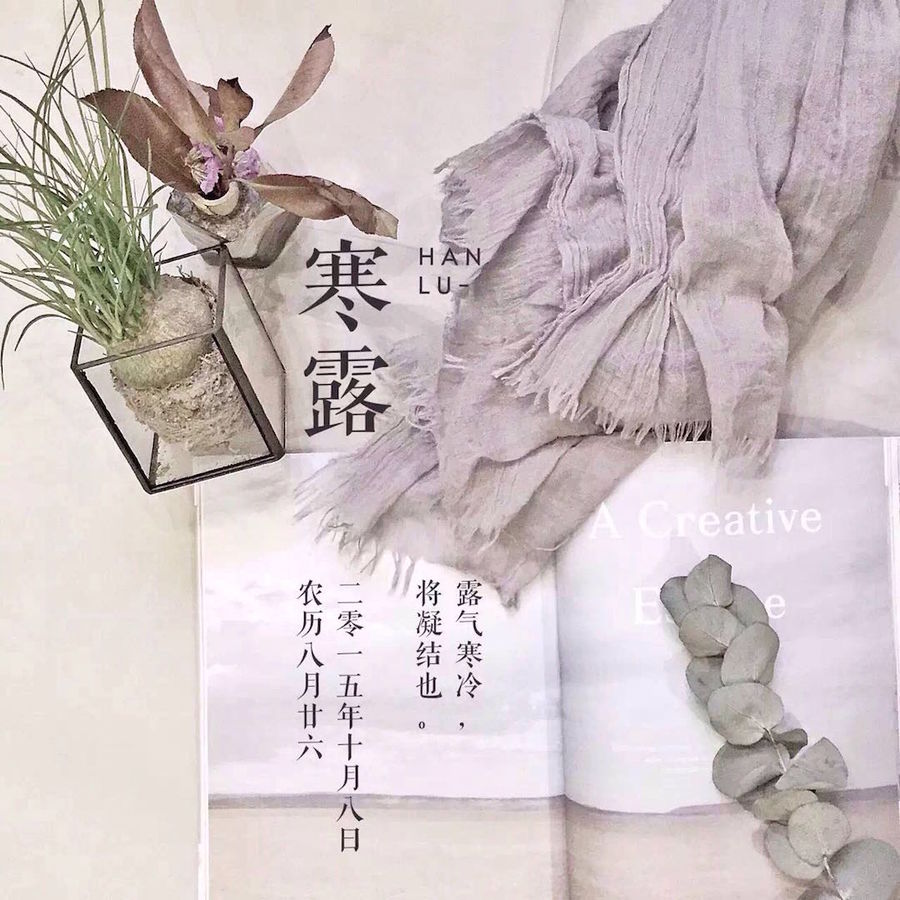 寒露
HAN
LU-
A Creative
露气寒冷，
将凝结也。
二零一五年十月八日
农历八月廿六